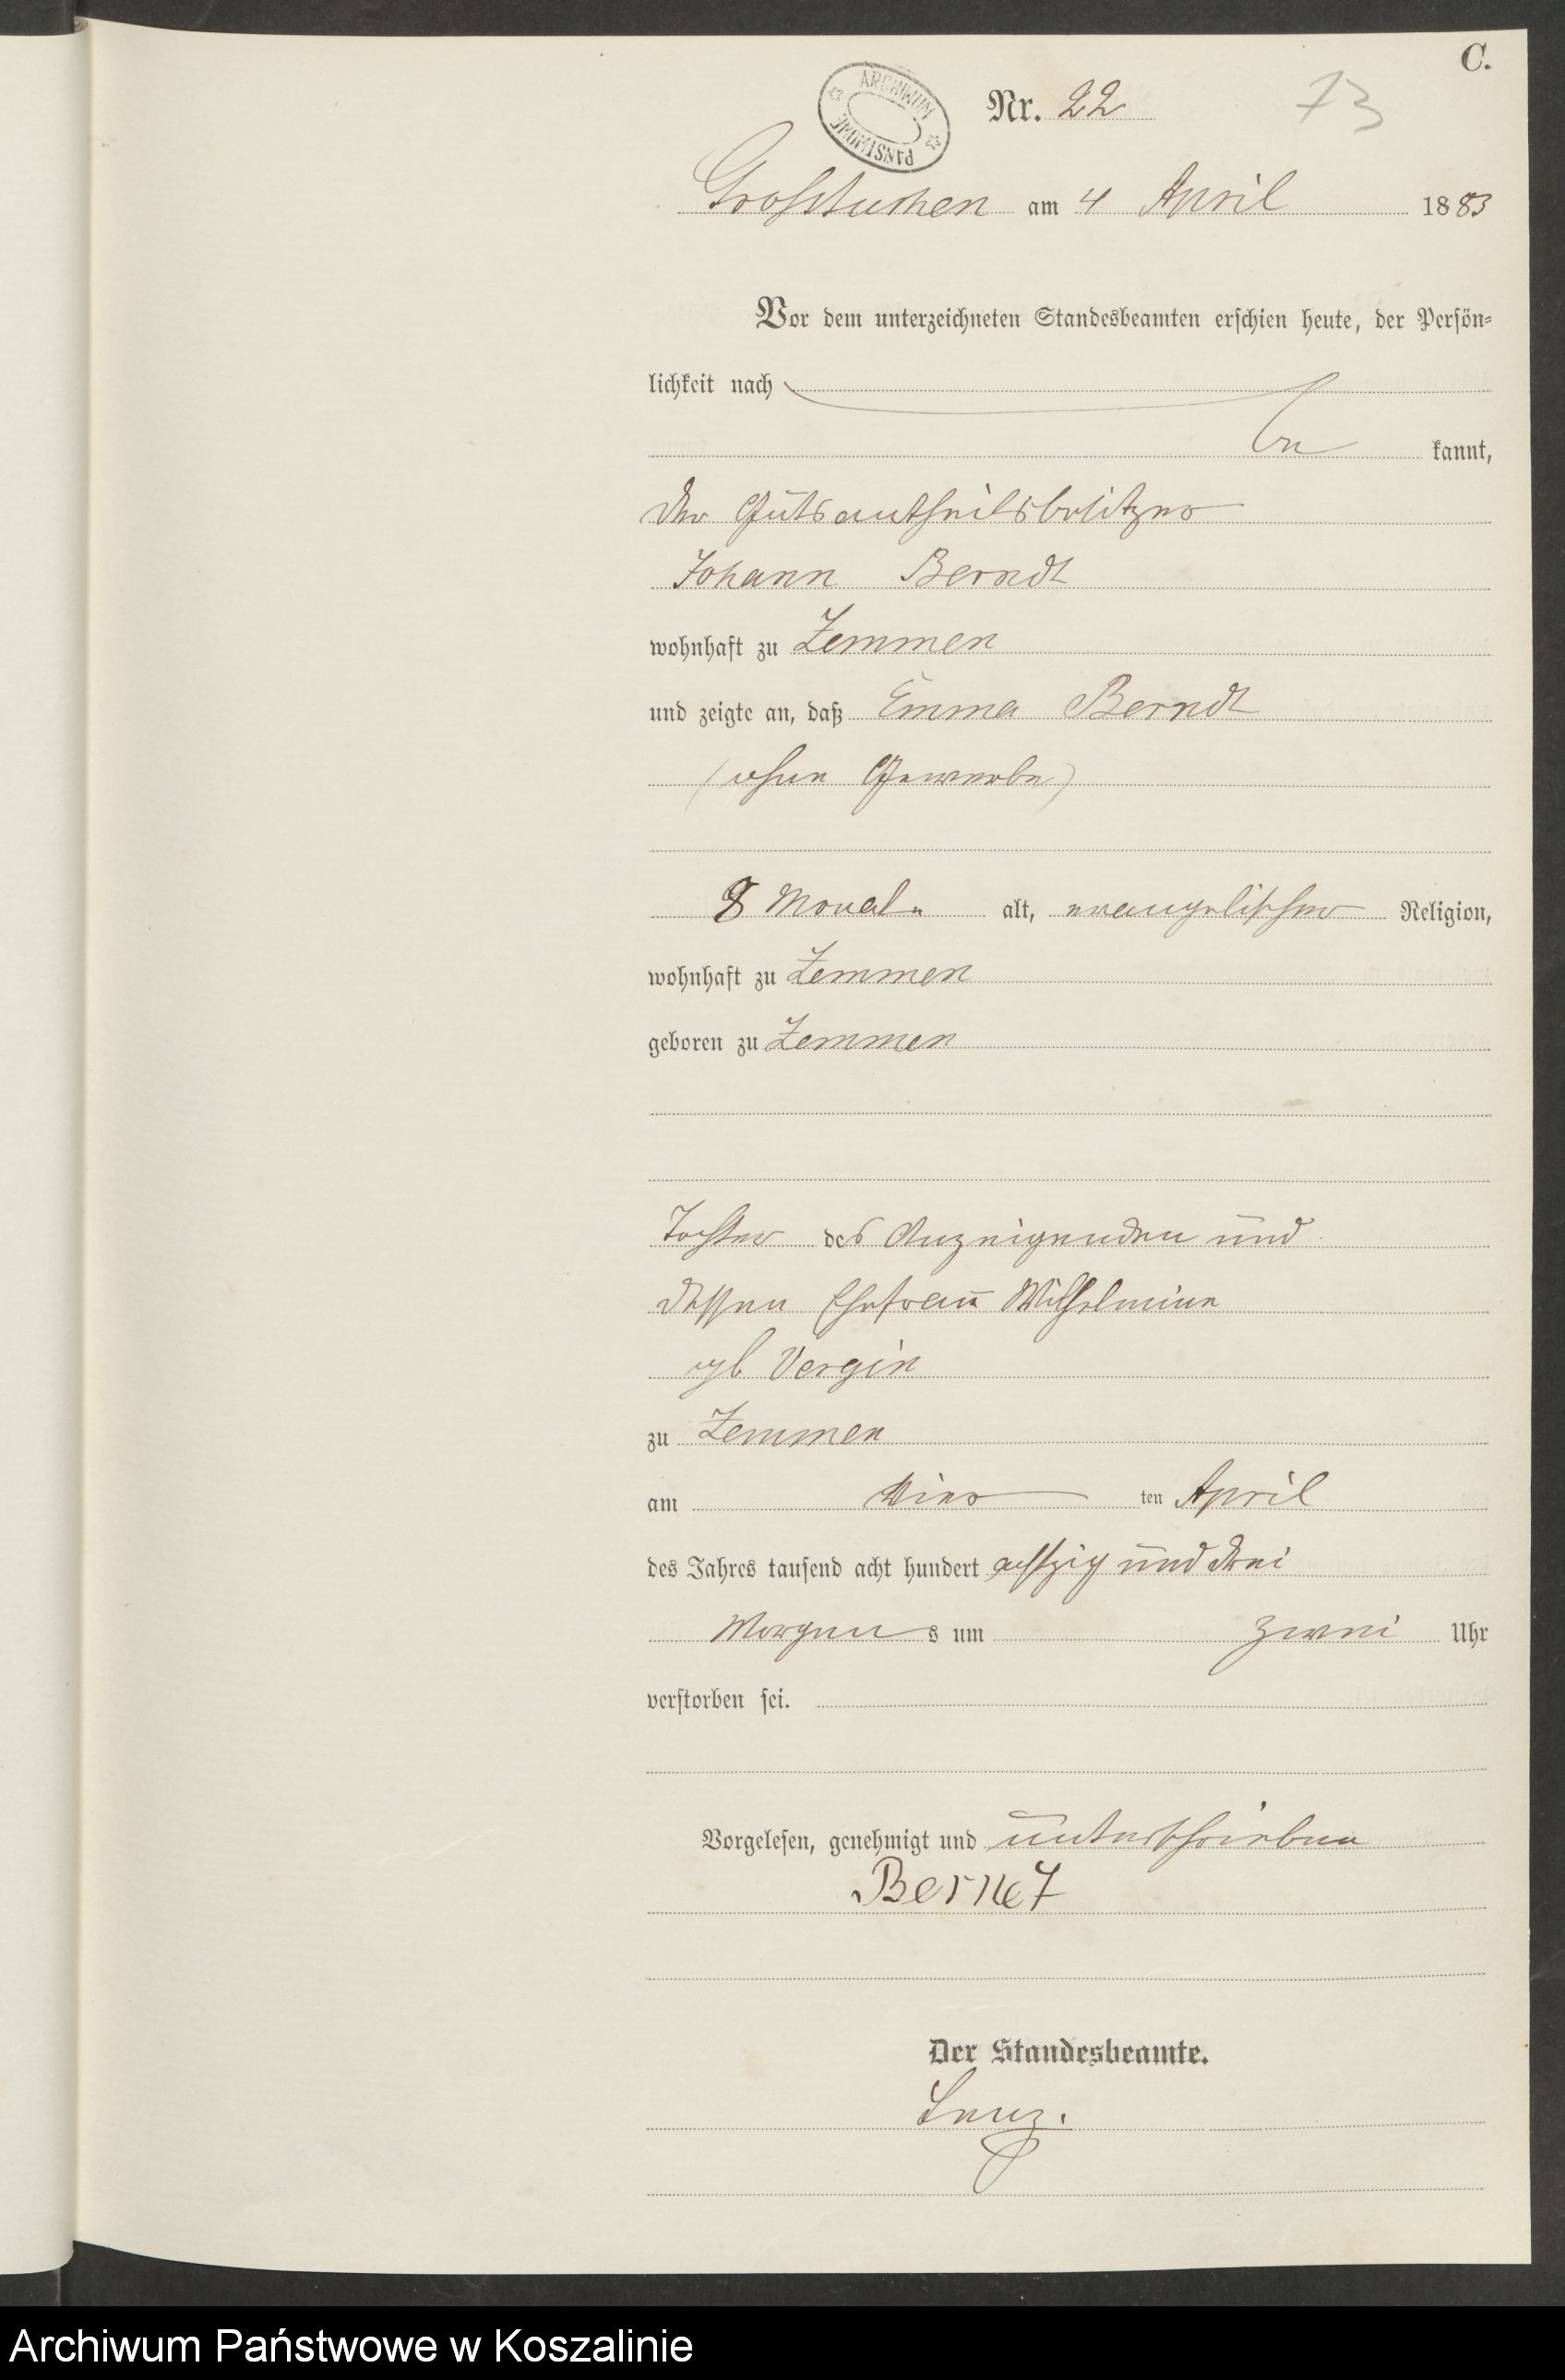 C.
ARCHIWUM PAŃSTWOWE
Nr. 22
73
Grosstuchen am 4 April 1883
Vor dem unterzeichneten Standesbeamten erschien heute, der Persön-
lichkeit nach
be kannt,
der Gutsantheilsbesitzer
Johann Berndt
wohnhaft zu Zemmen
und zeigte an, daß Emma Berndt
(ohne Gewerbe)
8 Monate alt, evangelischer Religion,
wohnhaft zu Zemmen
geboren zu Zemmen
Tochter des Anzeigenden und
dessen Ehefrau Wilhelmine
geb Vergin
zu Zemmen
am vier ten April
des Jahres tausend acht hundert achtzig und drei
Morgen s um zwei Uhr
verstorben sei.
Vorgelesen, genehmigt und unterschrieben
Der Standesbeamte.
Lenz.
Archiwum Państwowe w Koszalinie